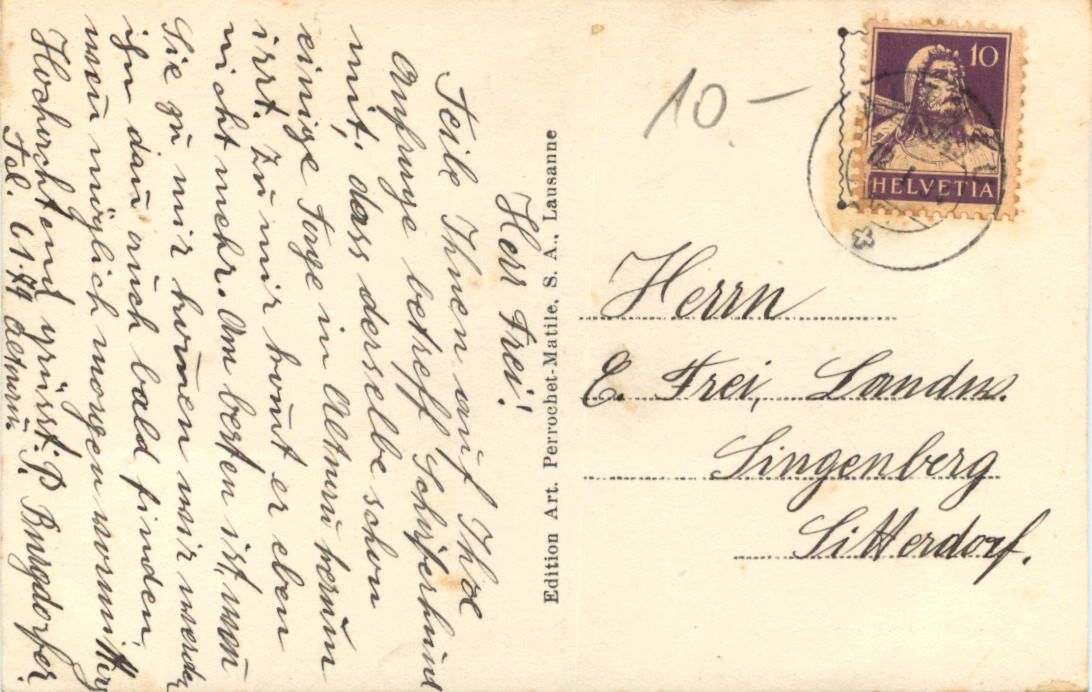 Herr Frei!
Teile Ihnen auf Ihre
Anfrage betreff Schäferhund
mit, dass derselbe schon
einige Tage in Altnau herum
irrt. Zu mir kom̄t er eben
nicht mehr. Am besten ist, wen
Sie zu mir kom̄en wir werden
ihn dan̄ auch bald finden,
wen möglich morgen vormittag
Hochachtend grüsst: P. Burgdorfer.
Tel. 61.79 Altnau.
Edition Art. Perrochet-Matile, S. A., Lausanne
10 –
10
HELVETIA
Herrn
E. Frei, Landw.
Singenberg
Sitterdorf.